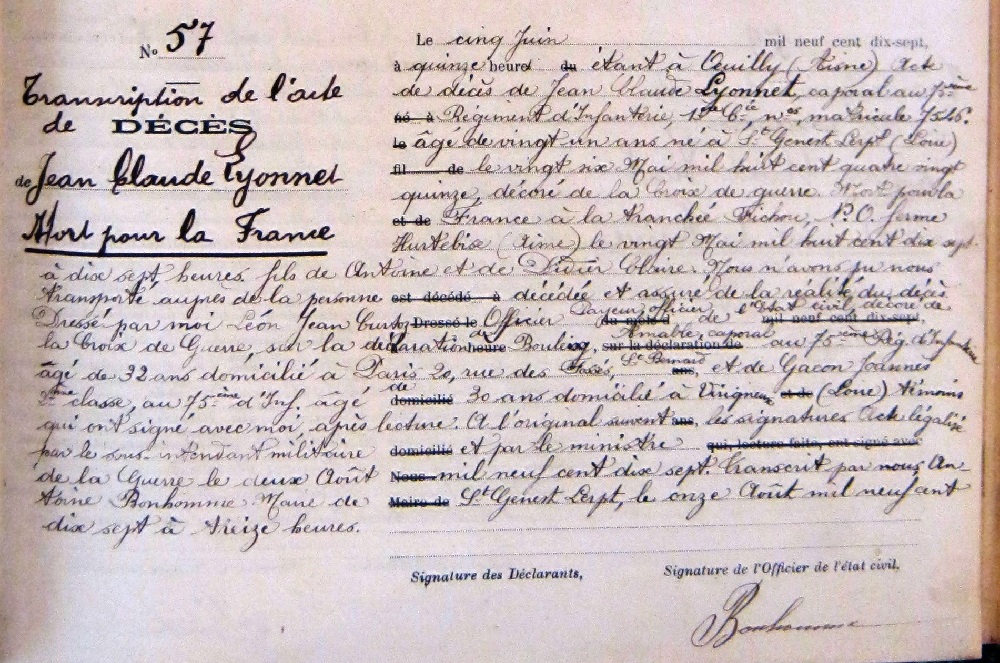 No 57
Transcription de l'acte
de DÉCÈS
de Jean Claude Lyonnet
Mort pour la France
Le cinq Juin mil neuf cent dix-sept,
à quinze heures du étant à Oeuilly (Aisne) Acte
de décès de Jean Claude Lyonnet, caporal au 75ème
né à Régiment d'Infanterie, 1ère Cie, nos, matricule 7526.
le âgé de vingt un ans né à St Genest Lerpt (Loire)
fil de le vingt six Mai mil huit cent quatre vingt
quinze, décoré de la Croix de guerre. Mort pour la
et de France à la tranchée Fichou, N.O. ferme
Hurtebise (Aisne) le vingt Mai mil huit cent dix sept
à dix sept heures, fils de Antoine et de Didier Claire. Nous n'avons pu nous
transporté auprès de la personne est décédé à décédée et assuré de la réalité du décès
Dressé par moi Léon Jean Curto, Dressé le Officier Payeur, officier du mois d de l'état civil, décoré de mil neuf cent dix-sept,
la Croix de Guerre, sur la déclaration heure Bouless, Amable, caporal sur la déclaration de au 75ème Rég. d'Infanterie
âgé de 32 ans domicilié à Paris 20, rue des Fossés, St Bernard ans, et de Gacon Joannès
2ème classe, au 75ème d'Inf. âgé de domicilié 30 ans domicilié à et de (Loire) témoins
qui ont signé avec moi, après lecture. A l'original suivent ans, les signatures Acte légalisé
par le sous-intendant militaire domicilié et par le ministre qui, lecture faite, ont signé avec
de la Guerre le deux Août Nous mil neuf cent dix sept. Transcrit par nous An-
toine Bonhomme Maire de Maire de St Genest Lerpt, le onze Août mil neuf cent
dix sept à treize heures.
Signature des Déclarants, Signature de l'Officier de l'état civil,
Bonhomme